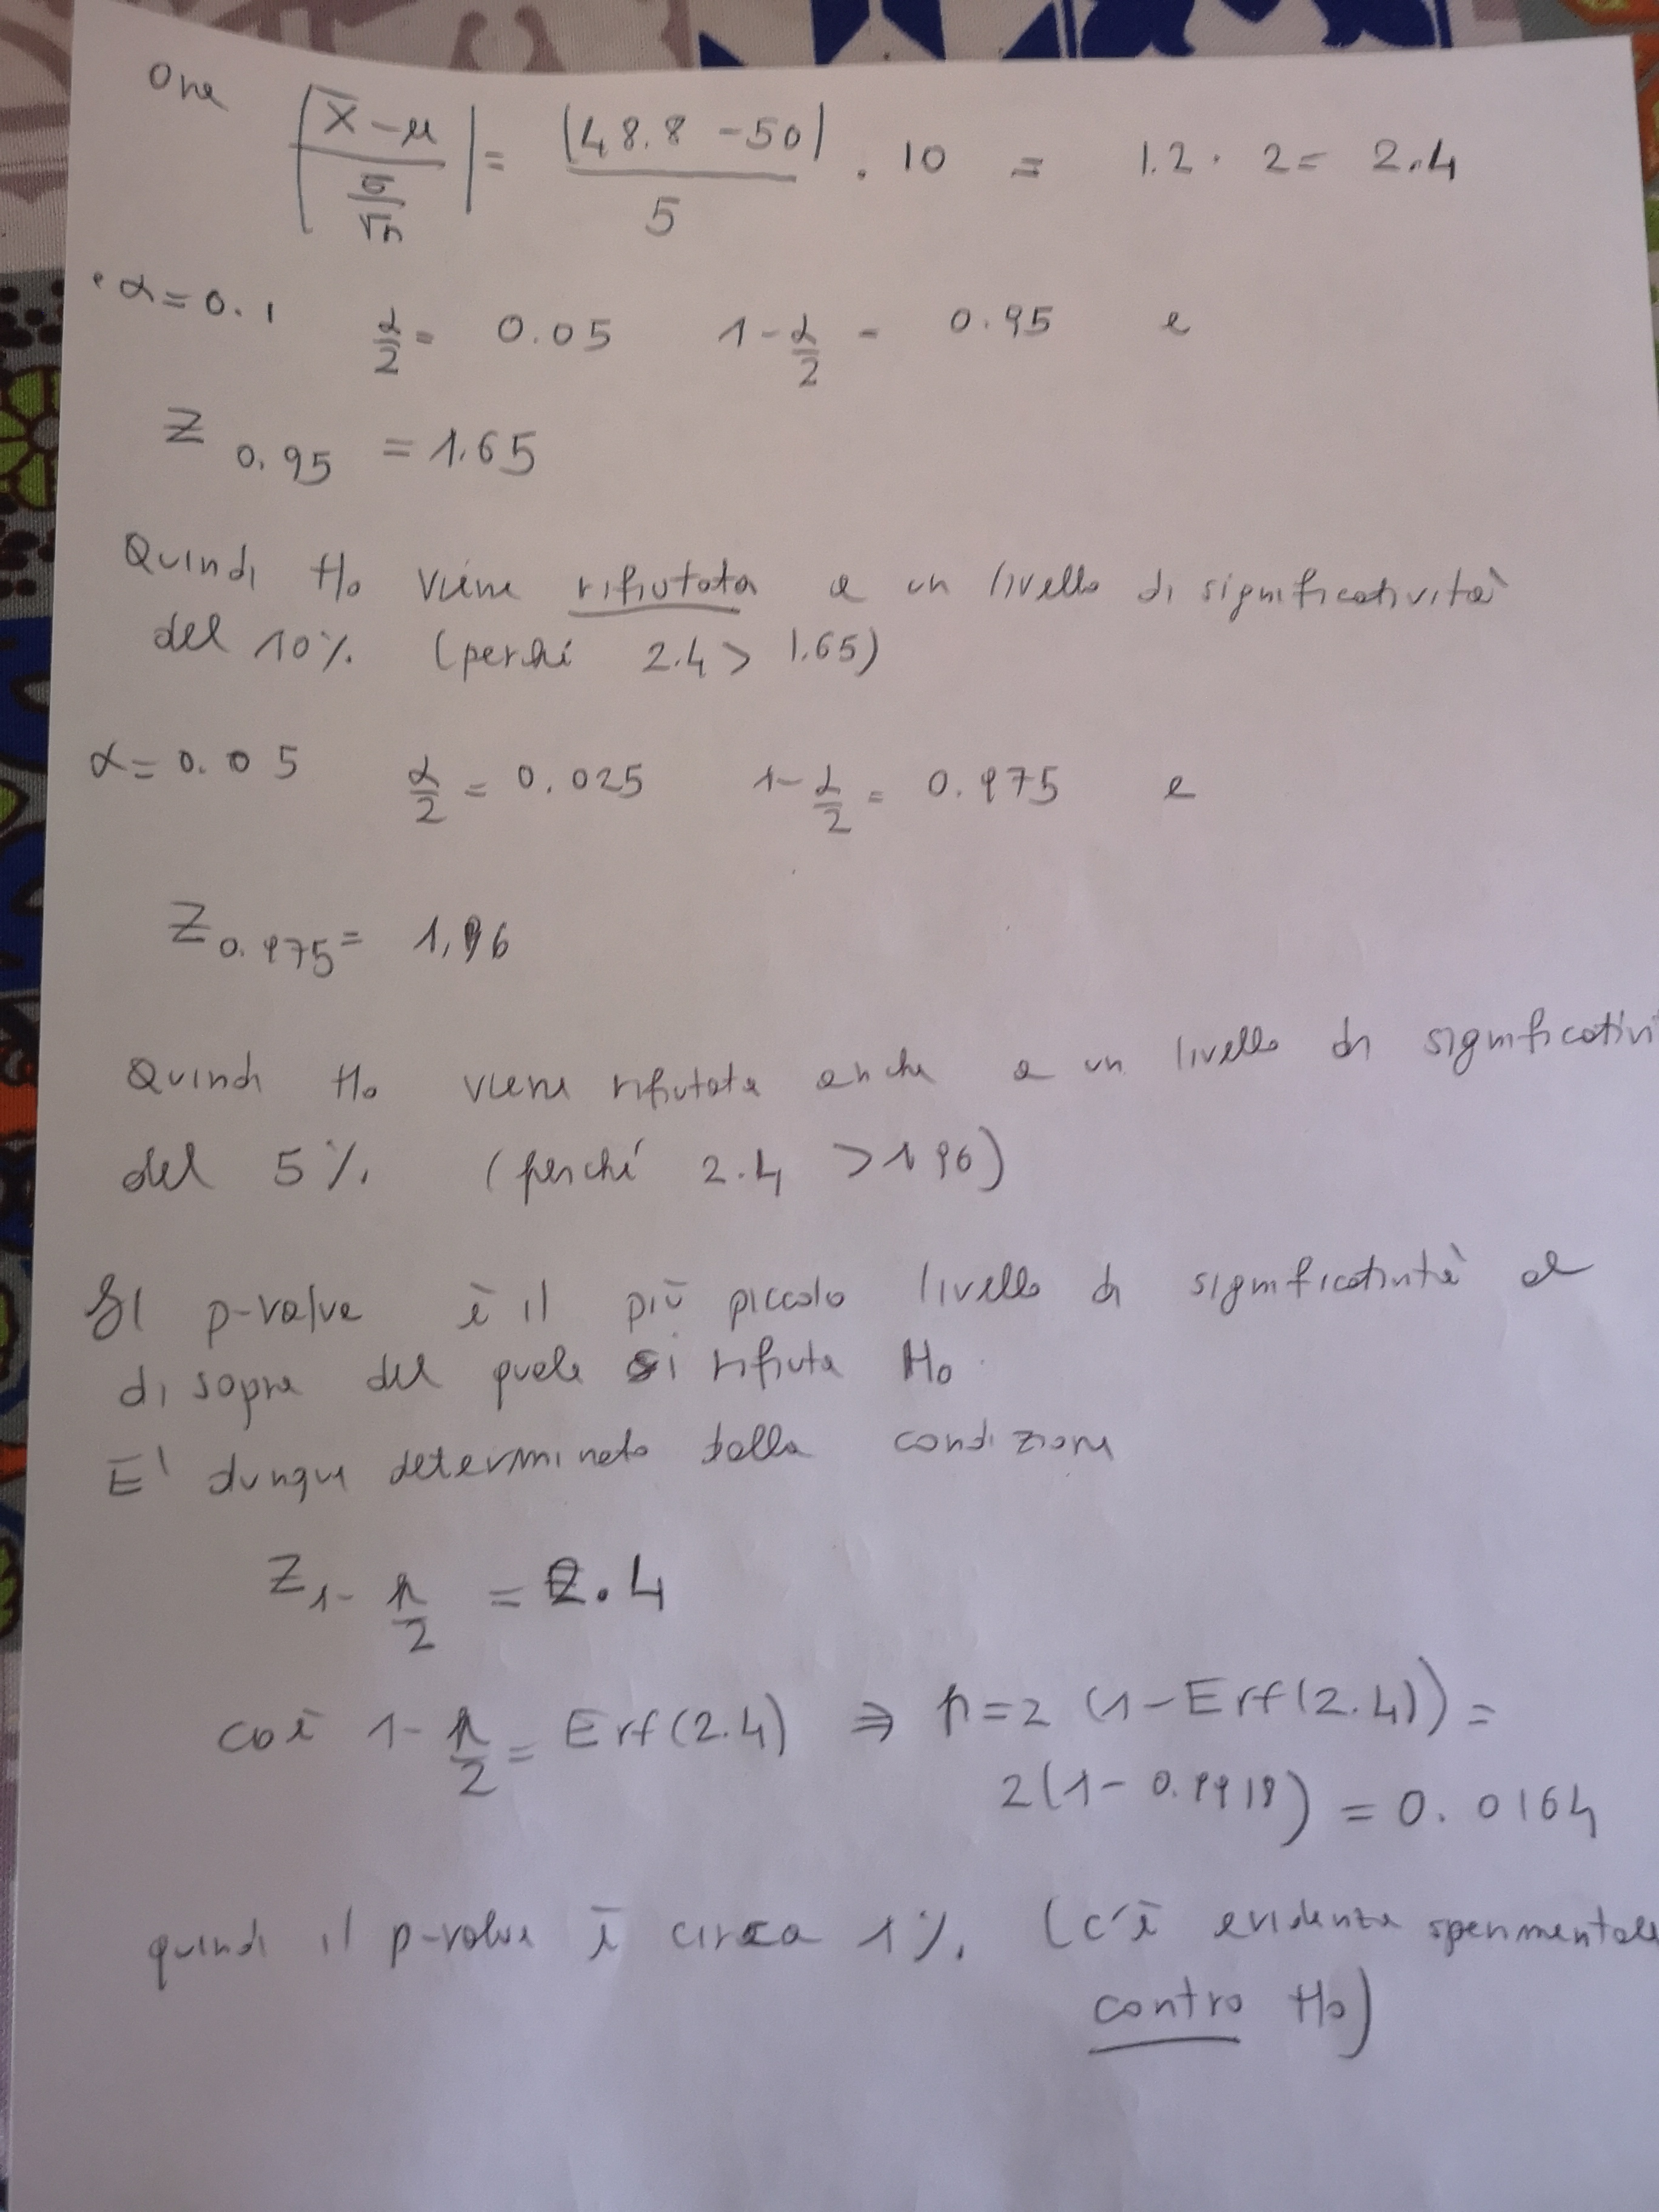 Ora
|x̄ - μ / σ/√n| = |48.8 - 50| / 5 . 10 = 1.2 . 2 = 2.4
• α = 0.1 α/2 = 0.05 1 - α/2 = 0.95 e
Z 0.95 = 1.65
Quindi H0 viene rifiutata a un livello di significatività
del 10% (perché 2.4 > 1.65)
α = 0.05 α/2 = 0.025 1 - α/2 = 0.975 e
Z 0.975 = 1,96
Quindi H0 viene rifiutata anche a un livello di significativi
del 5% (perché 2.4 > 1 96)
Il p-value è il più piccolo livello di significatività al
di sopra del quale si rifiuta H0.
E' dunque determinato dalla condizione
Z 1 - p/2 = 2.4
cioè 1 - p/2 = Erf(2.4) ⇒ p = 2 (1 - Erf(2.4)) =
2(1 - 0.9918) = 0.0164
quindi il p-value è circa 1%. (c'è evidenza sperimentale
contro H0)